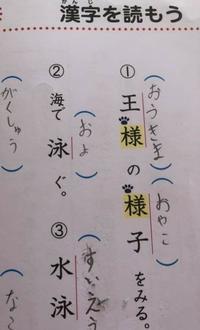 漢字を読もう
かんじ
① 王様の様子をみる。
(おうさま)(おやこ)
② 海で泳ぐ。
(およ)
③ 水泳
(すいえう
(がくしゅう)
(なこ